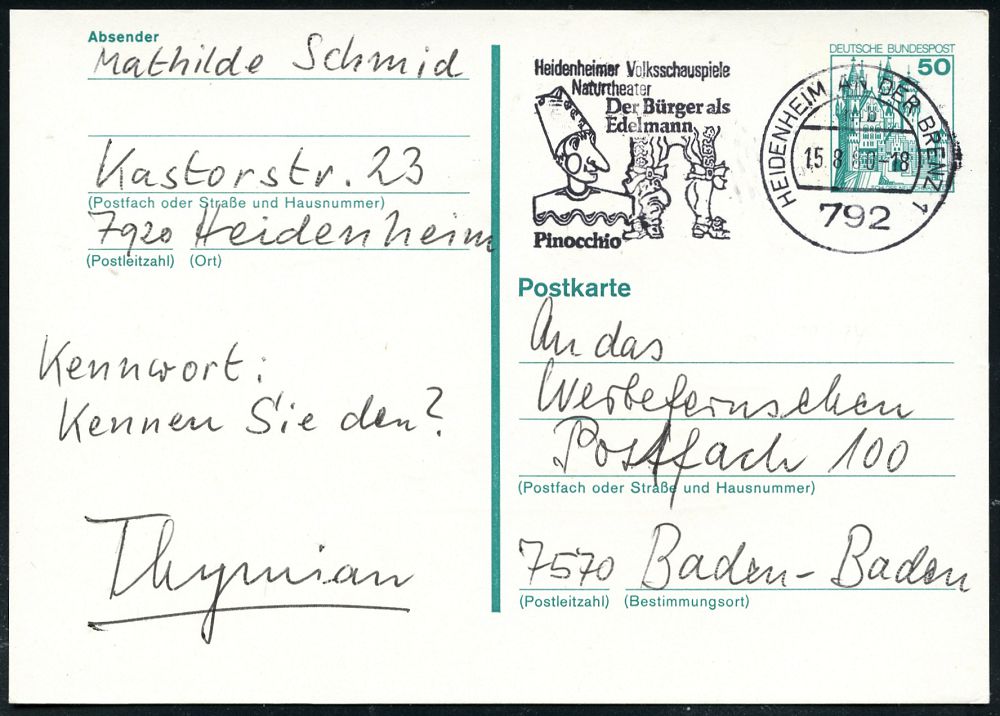 Absender
Mathilde Schmid
Kastorstr. 23
(Postfach oder Straße und Hausnummer)
7920 Heidenheim
(Postleitzahl) (Ort)
Kennwort:
Kennen Sie den?
Thymian
Heidenheimer Volksschauspiele
Naturtheater
Der Bürger als
Edelmann
Pinocchio
HEIDENHEIM AN DER BRENZ 1
15.8.80-18
792
DEUTSCHE BUNDESPOST
50
Postkarte
An das
Werbefernsehen
Postfach 100
(Postfach oder Straße und Hausnummer)
7570 Baden-Baden
(Postleitzahl) (Bestimmungsort)